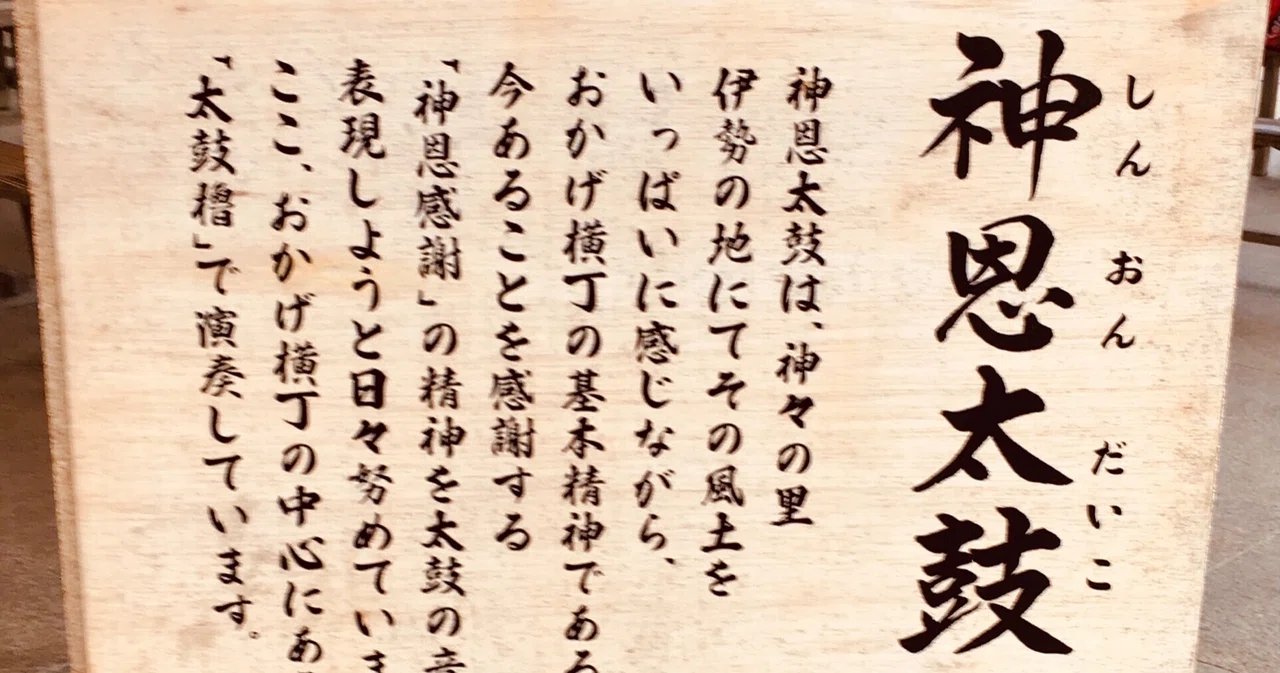 神恩太鼓
しん おん だいこ
神恩太鼓は、神々の里
伊勢の地にてその風土を
いっぱいに感じながら、
おかげ横丁の基本精神である
今あることを感謝する
「神恩感謝」の精神を太鼓の音
表現しようと日々努めていま
ここ、おかげ横丁の中心にあ
「太鼓櫓」で演奏しています。